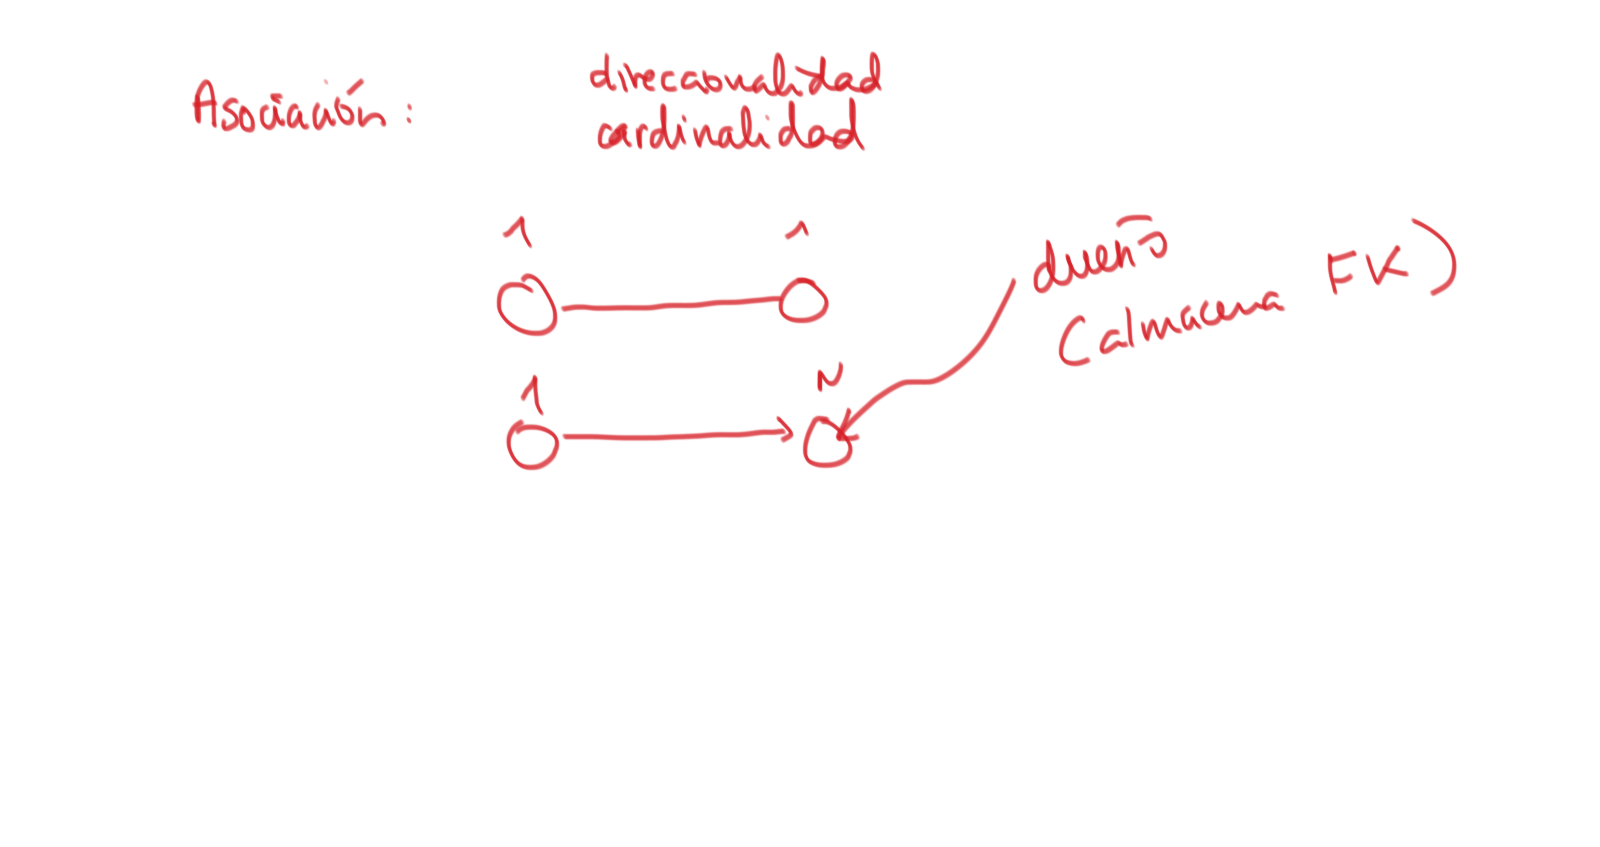 Asociación:
direccionalidad
cardinalidad
1 1
dueño
(almacena FK)
1 N